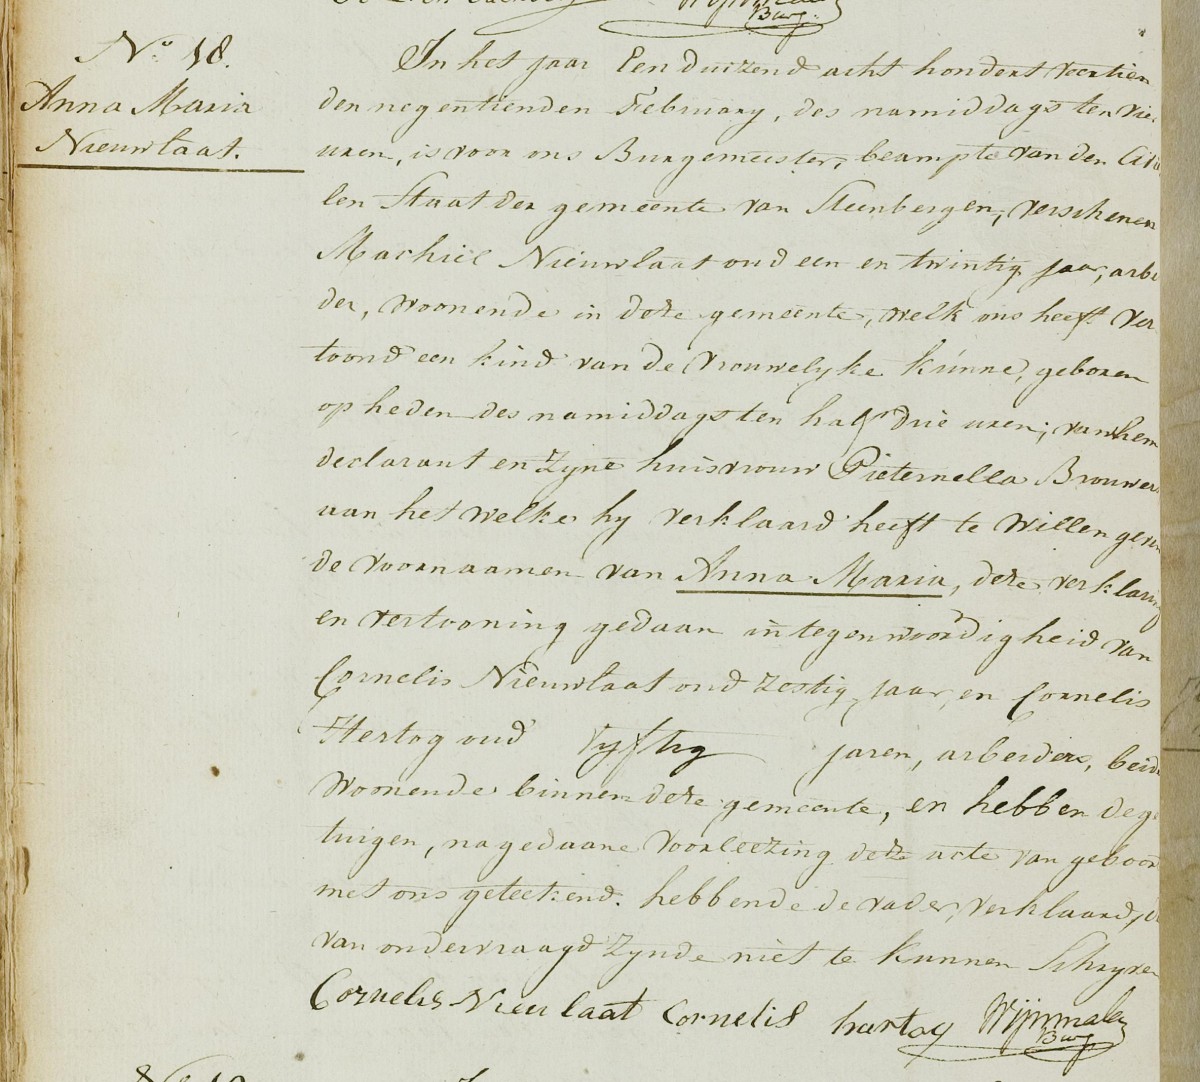 Burg.
N.º 18.
Anna Maria
Nieuwlaat.
In het jaar Een duizend acht hondert veertien
den negentienden February, des namiddags ten vie
uren, is voor ons Burgemeester, beampte van den Civi
len Staat der gemeente van Steenbergen, verschenen
Machiel Nieuwlaat oud een en twintig jaar, arbe
der, Woonende in deze gemeente, welk ons heeft ver
toond een kind van de Vrouwelyke kúnne, geboren
op heden des namiddags ten half drie uren, van hem
declarant en Zyne huisvrouw Pieternella Brouwers
aan het welke hy verklaard heeft te willen geven
de voornaamen van Anna Maria, deze verklaring
en vertooning gedaan in tegenwoordigheid van
Cornelis Nieuwlaat oud Zestig Jaar, en Cornelis
Hertog oud vyftig jaren, arbeiders, beide
Woonende binnen deze gemeente, en hebben de ge
tuigen, na gedaane Voorleezing deze acte van geboor
met ons geteekend. hebbende de vader, verklaard,
van ondervraagd Zynde niet te kunnen Schryven
Cornelis Nieulaat Cornelis hartog Wijnmalen
Burg